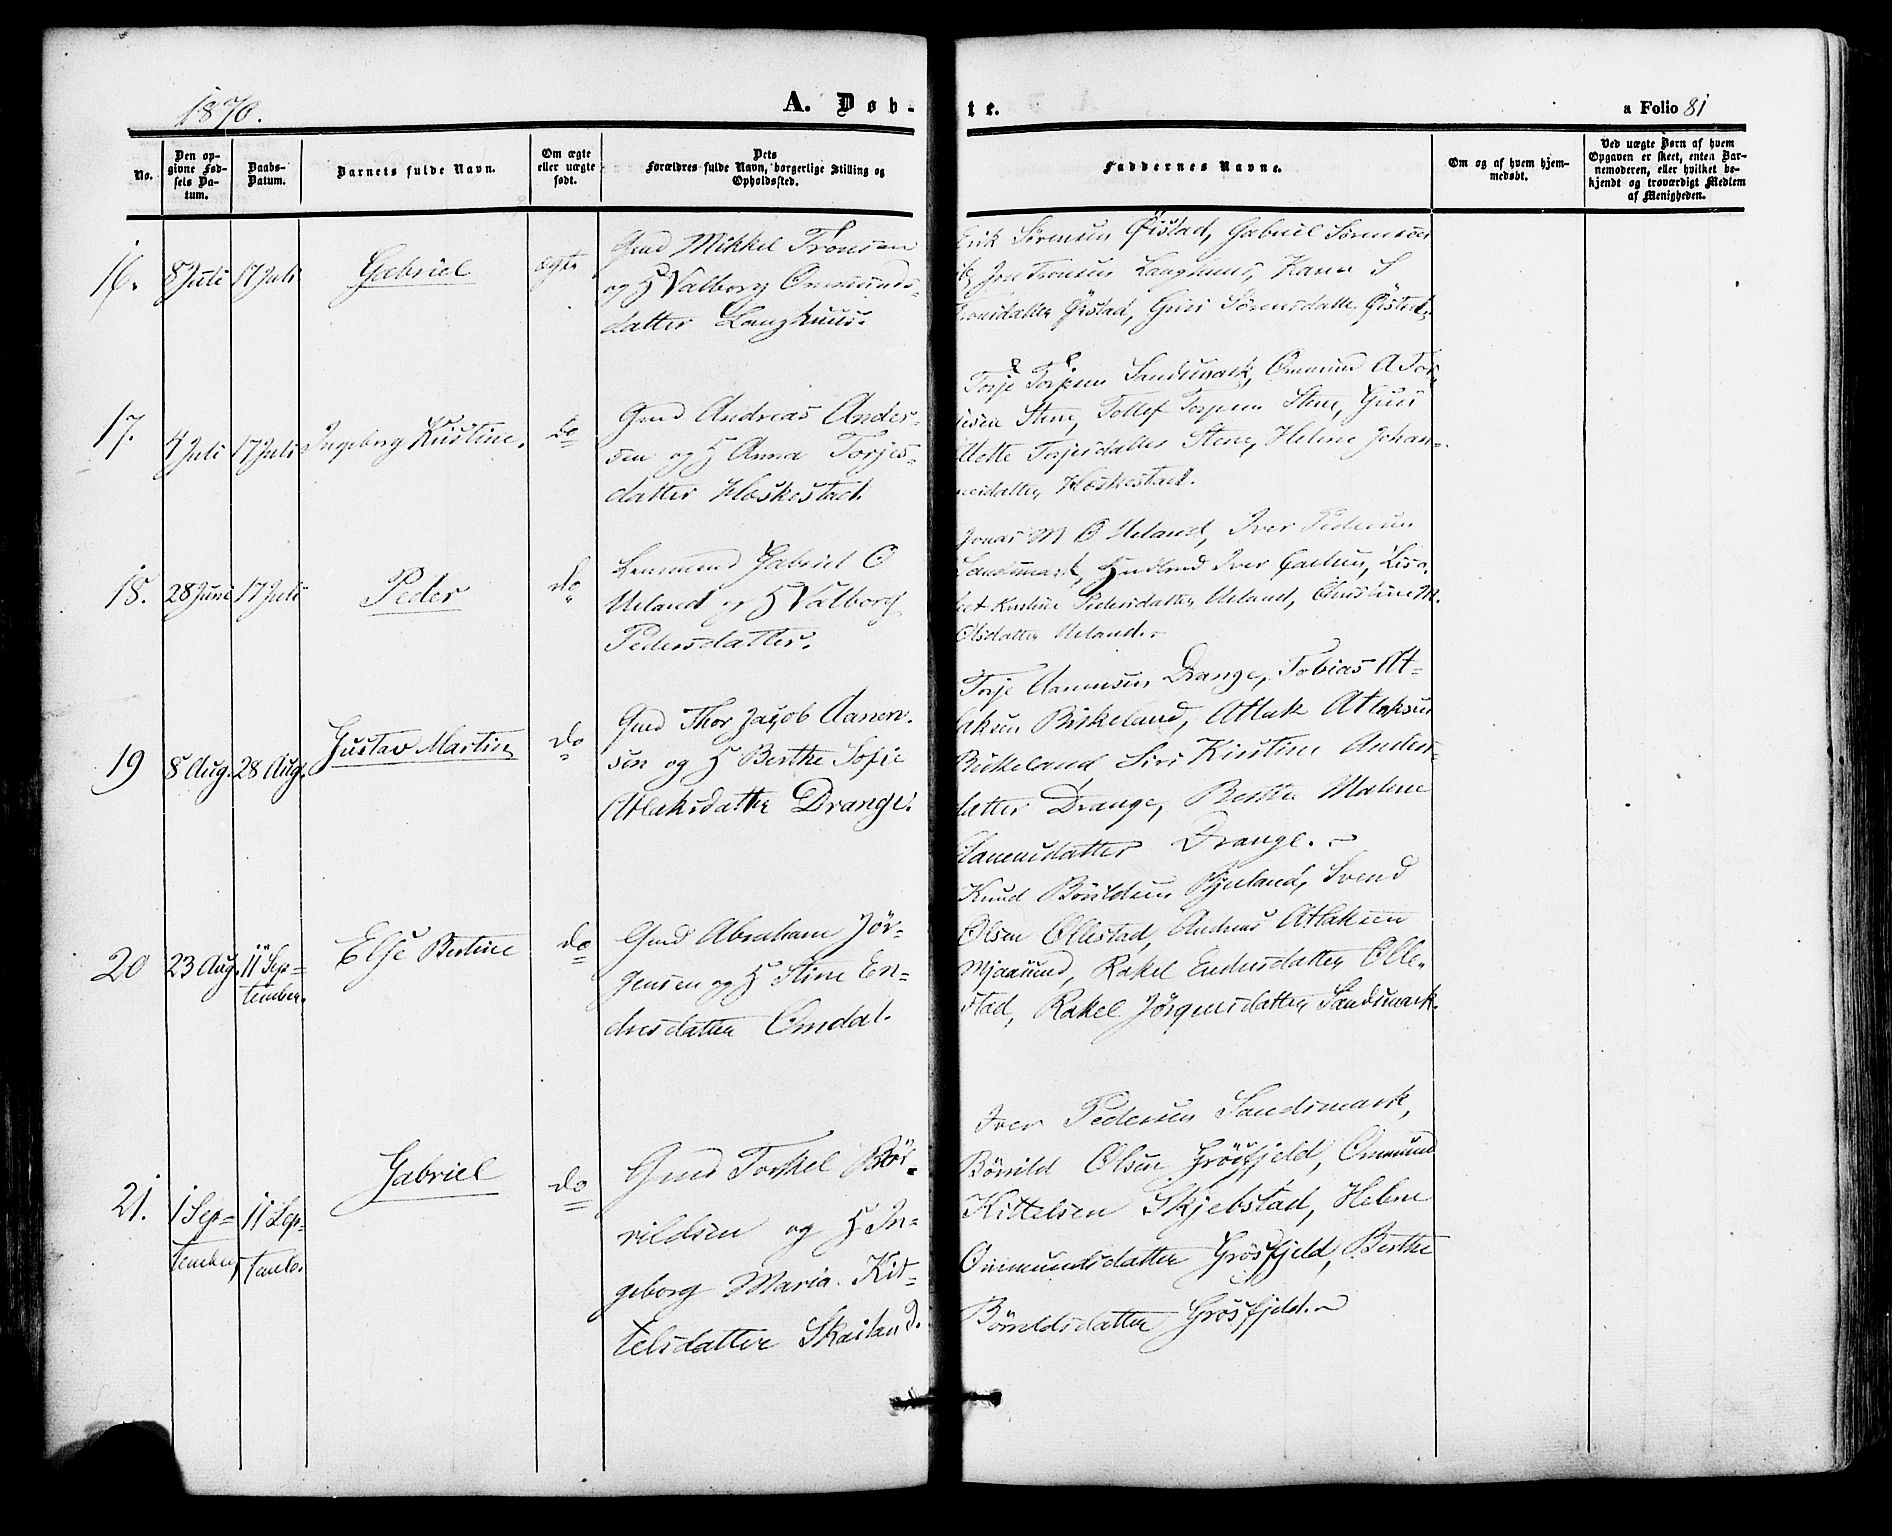 1870.
A. Døb-
te.
a Folio 81
No.
Den op-
givne Fød-
sels Da-
tum.
Daabs-
Datum.
Barnets fulde Navn.
Om ægte
eller uægte
født.
Dets
Forældres fulde Navn, borgerlige Stilling og
Opholdssted.
Faddernes Navne.
Om og af hvem hjem-
medøbt.
Ved uægte Børn af hvem
Opgaven er skeet, enten Bar-
nemoderen, eller hvilket be-
kjendt og troværdigt Medlem
af Menigheden.
16.
8 Juli
17 Juli
Gabriel
ægte
Gmd Mikkel Tronsen
og H Valborg Ommunds-
datter Langhuus.
Erik Sørensen Øistad, Gabriel Sørensen
Jon Tronsen Langhuus, Karen S
Tronsdatter Øistad, Guri Sørensdatter Øistad.
17.
4 Juli
17 Juli
Ingeborg Kristine.
do
Gmd Andreas Anders-
sen og H Anna Torjes-
datter Hoskestad.
Torje Torjesen Sandsmark, Ommund A Tor-
jesen Stene, Tollef Torjesen Stene, Guri
Mette Torjesdatter Stene, Helene Johan-
nesdatter Hoskestad.
18.
28 Juni
17 Juli
Peder
do
Lensmand Gabriel O
Ueland og H Valborg
Pedersdatter.
Jonas M O Ueland, Iver Pedersen
Sandsmark, Iver Carlsen, Lisa-
bet Kirstine Pedersdatter Ueland, Christine M.
Olsdatter Ueland.
19
8 Aug.
28 Aug.
Gustav Martin
do
Gmd Thor Jacob Aanen-
sen og H Berthe Sofie
Atlaksdatter Drange.
Torje Aanensen Drange, Tobias At-
laksen Birkeland, Atlak Atlaksen
Birkeland, Siri Kirstine Anders-
datter Drange, Berthe Malene
Aanensdatter Drange.
20
23 Aug.
11 Sep-
tember.
Else Bertine
do
Gmd Abraham Jør-
gensen og H Stine En-
dresdatter Omdal.
Knud Børildsen, Svend
Olsen Ollestad, Andreas Atlaksen
Mjaasund, Rakel Endresdatter Olle-
stad, Rakel Jørgensdatter Sandsmark.
21.
1 Sep-
tember
11 Sep-
temb.
Gabriel
do
Gmd Torkel Bør-
rildsen og H In-
geborg Maria Kit-
telsdatter Skailand.
Iver Pedersen Sandsmark,
Børrild Olsen Grøsfjeld, Ommund
Kittelsen Skjebstad, Helene
Ommundsdatter Grøsfjeld, Berthe
Børrildsdatter Grøsfjeld.